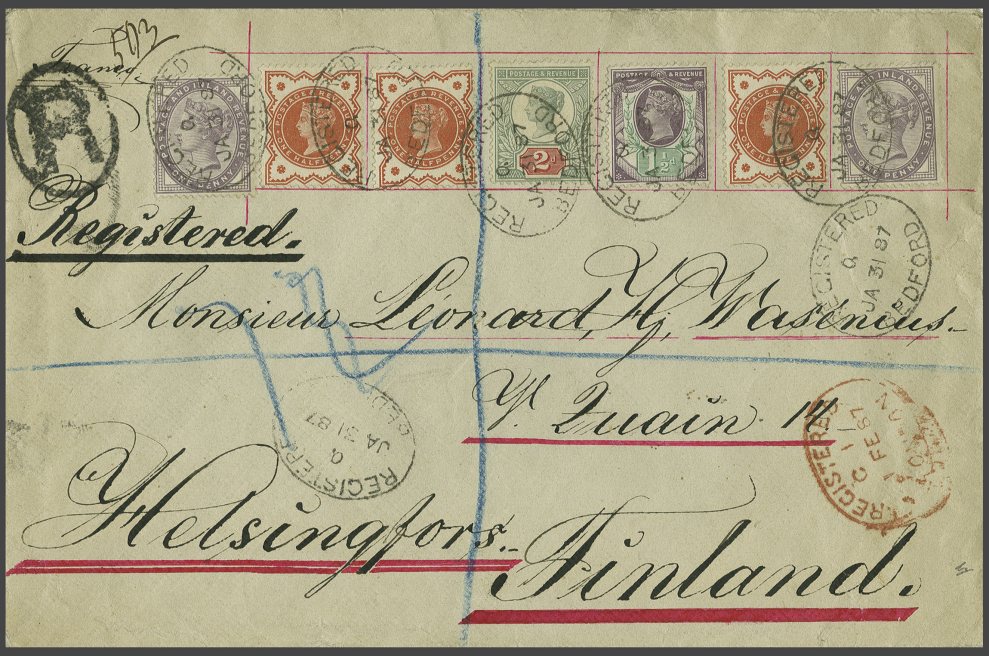 503
R
POSTAGE AND INLAND REVENUE
ONE PENNY
POSTAGE & REVENUE
ONE HALFPENNY
POSTAGE & REVENUE
ONE HALFPENNY
POSTAGE & REVENUE
2D
POSTAGE & REVENUE
1½D
POSTAGE & REVENUE
ONE HALFPENNY
POSTAGE AND INLAND REVENUE
ONE PENNY
REGISTERED
JA 31 87
BEDFORD
Registered.
REGISTERED
JA 31 87
BEDFORD
Monsieur Léonard, H, Wasenius.
REGISTERED
JA 31 87
14
REGISTERED
1 FE 87
Helsingfors.
Finland.